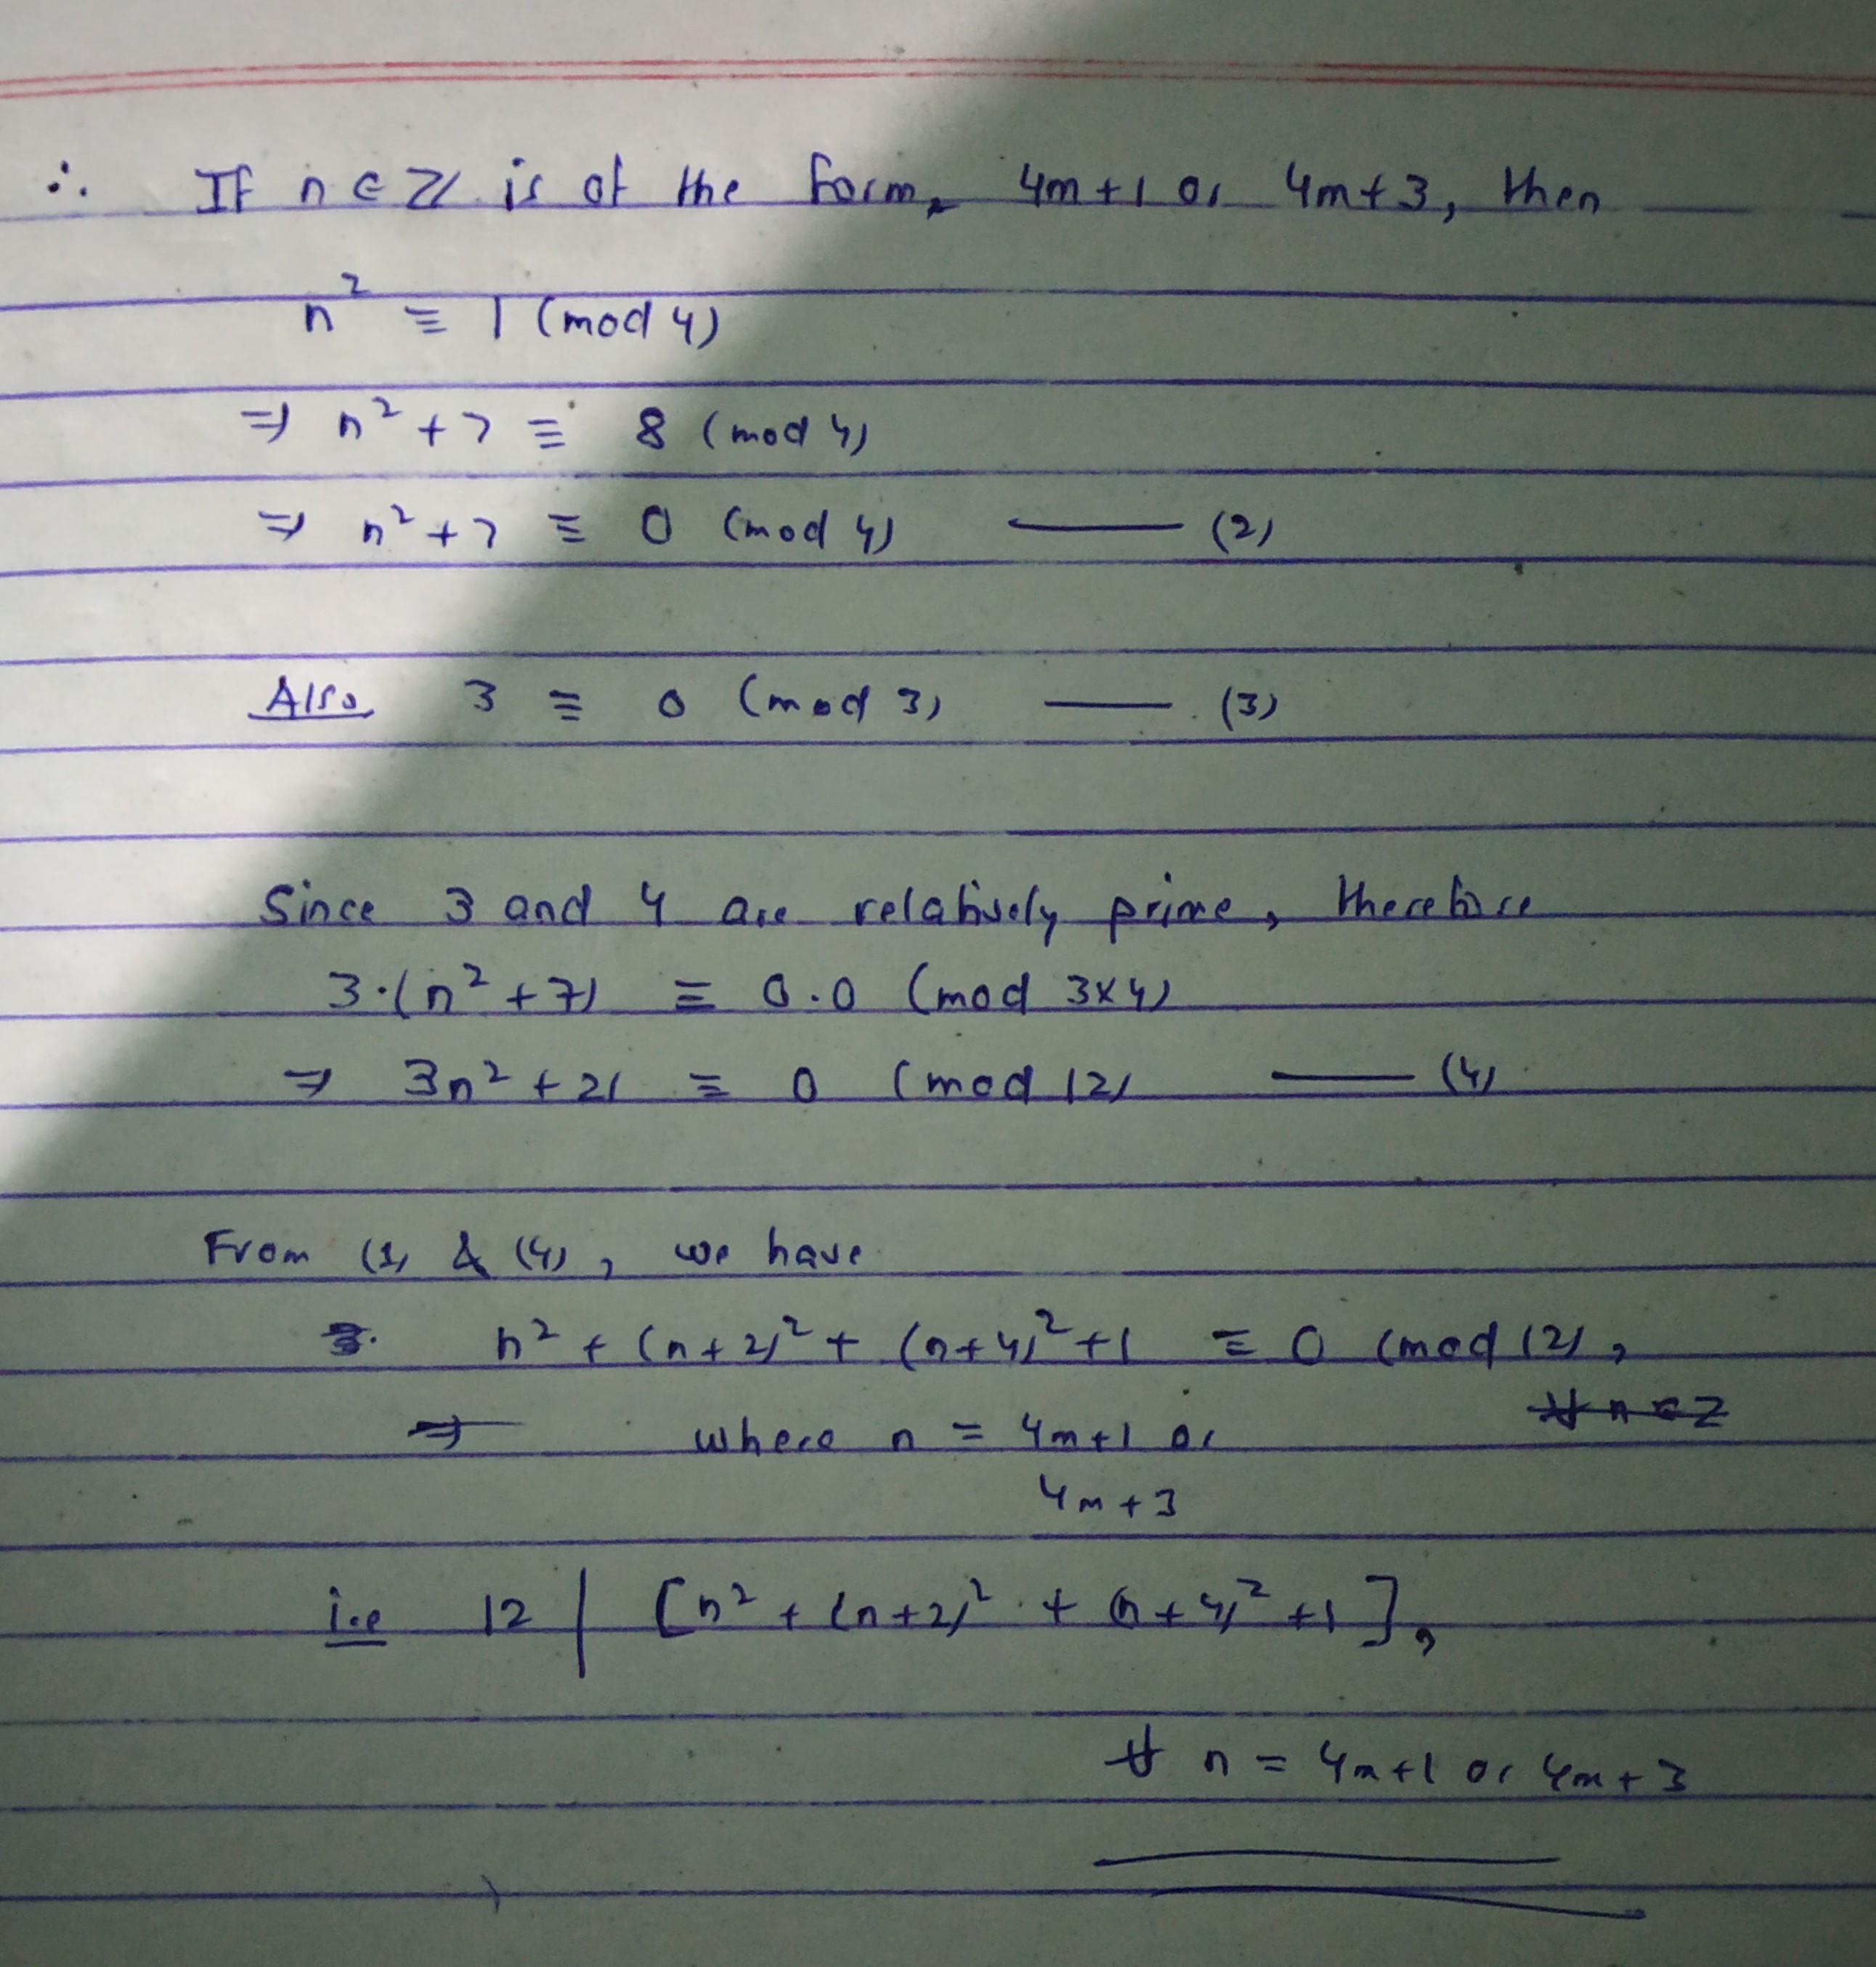 ∴ If n ∈ Z is of the form, 4m+1 or 4m+3, then
n² ≡ 1 (mod 4)
⇒ n² + 7 ≡ 8 (mod 4)
⇒ n² + 7 ≡ 0 (mod 4) —— (2)
Also 3 ≡ 0 (mod 3) —— (3)
Since 3 and 4 are relatively prime, therefore
3·(n² + 7) ≡ 0.0 (mod 3×4)
⇒ 3n² + 21 ≡ 0 (mod 12) —— (4)
From (1) & (4), we have
n² + (n+2)² + (n+4)² + 1 ≡ 0 (mod 12),
⇒ where n = 4m+1 or ∀ n ∈ Z
4m+3
i.e 12 | [n² + (n+2)² + (n+4)² + 1],
∀ n = 4m+1 or 4m+3